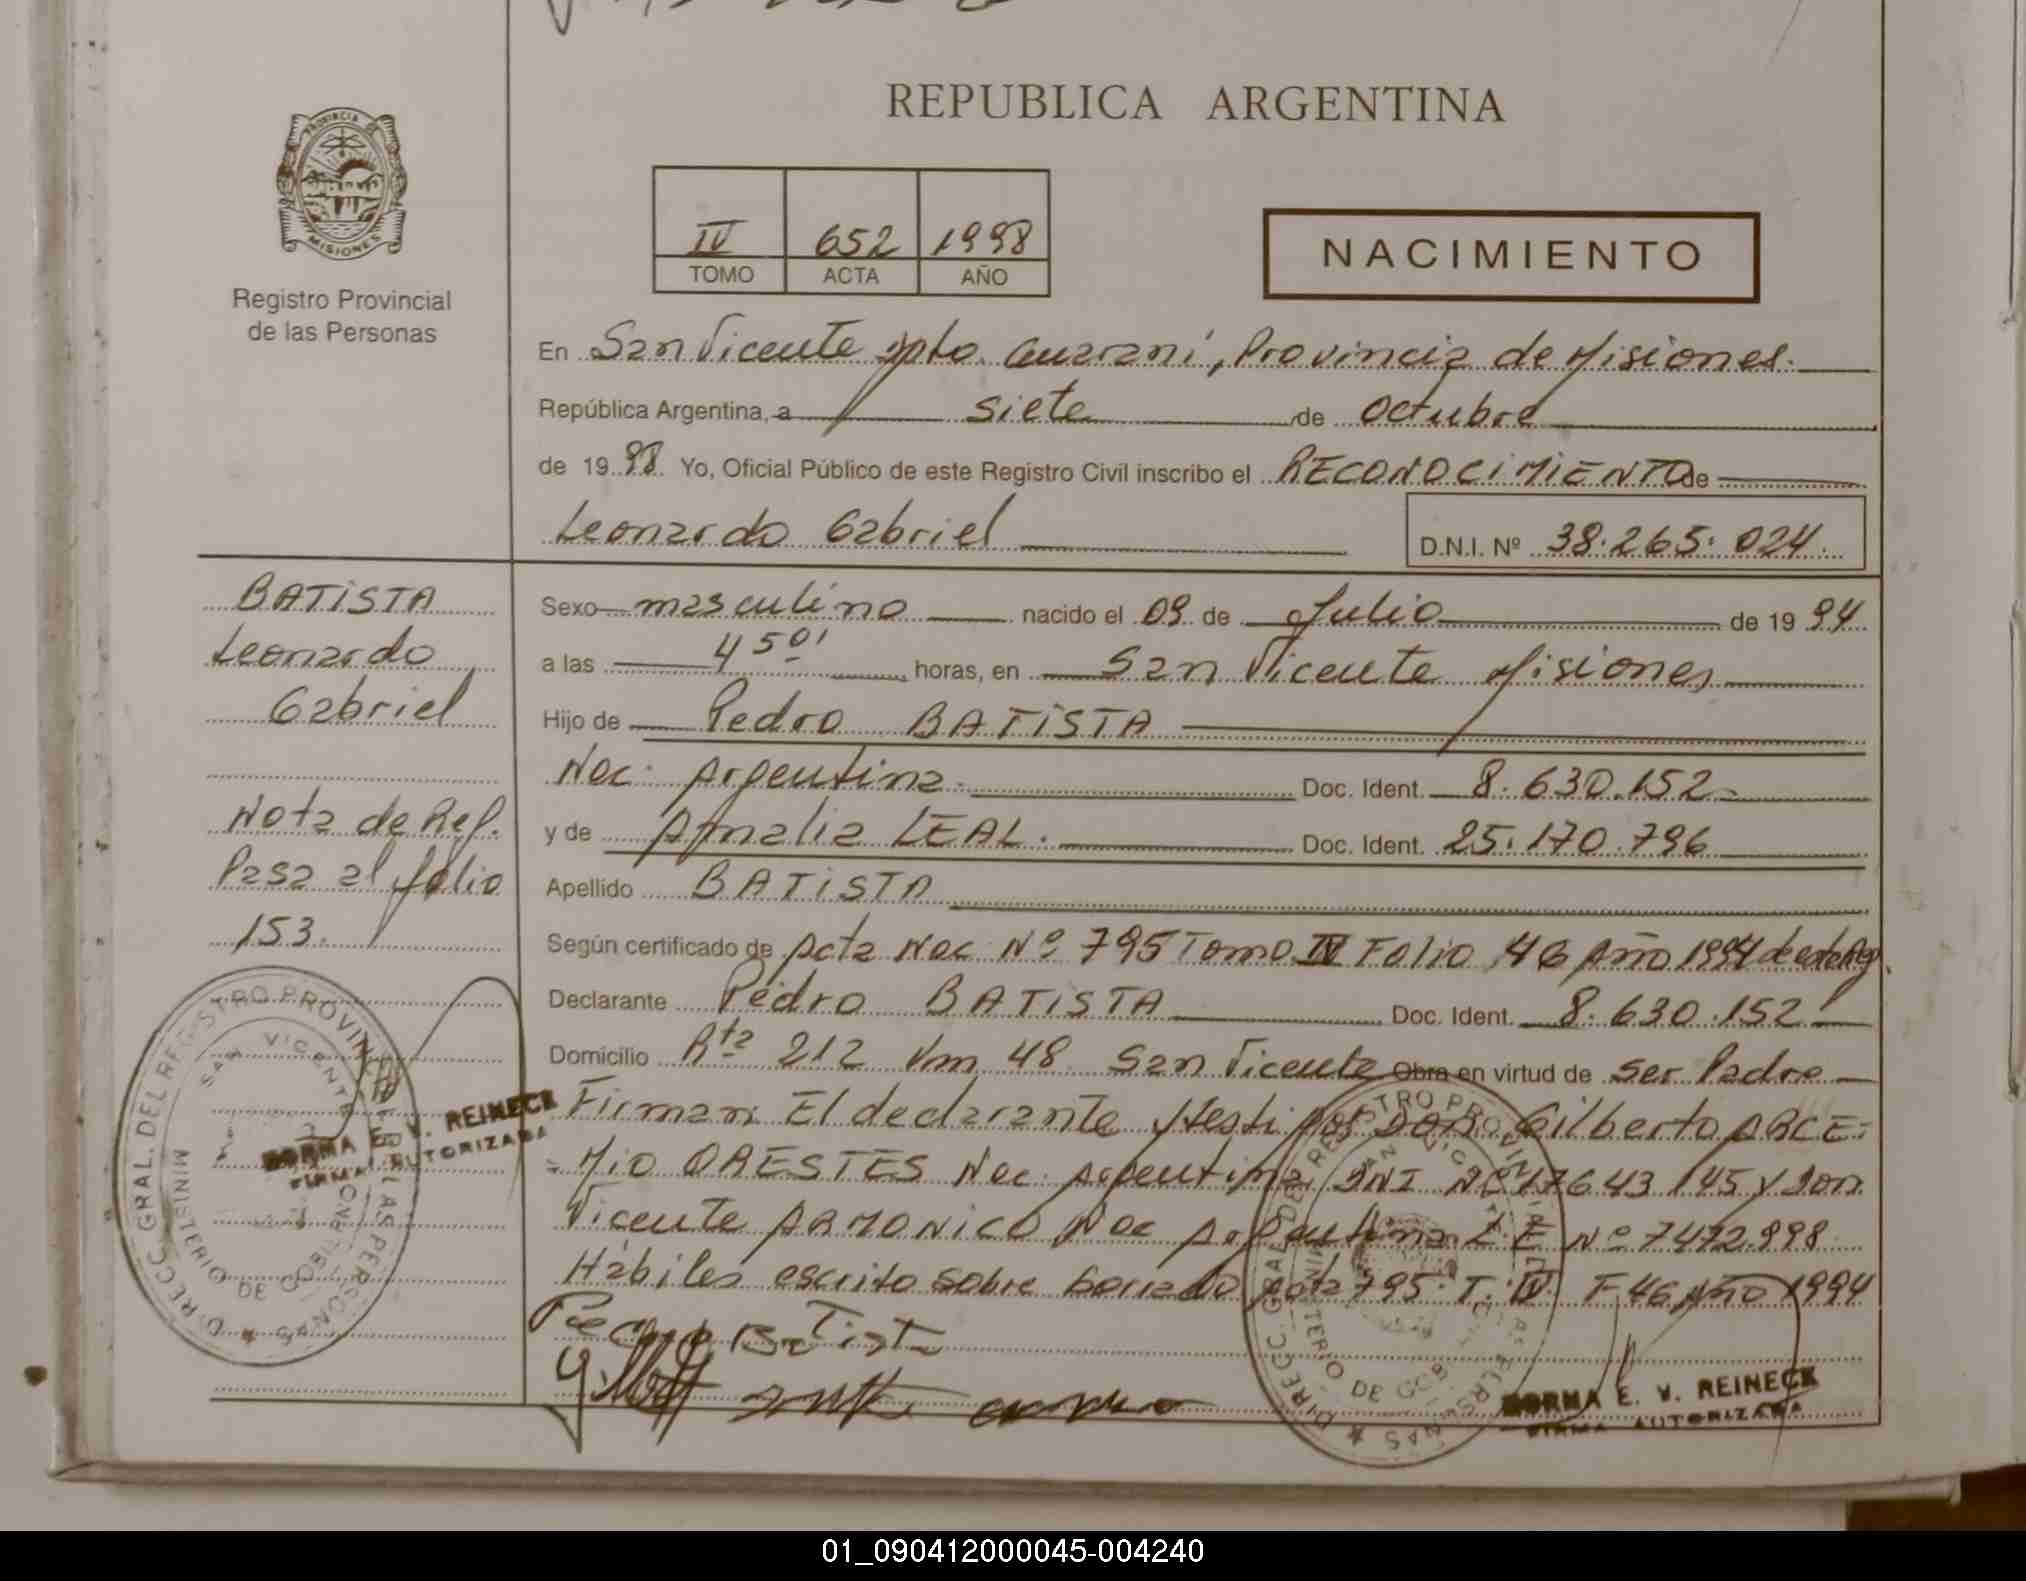 REPUBLICA ARGENTINA
PROVINCIA DE
MISIONES
Registro Provincial
de las Personas
IV 652 1998
TOMO ACTA AÑO
NACIMIENTO
En San Vicente Dpto. Guaraní, Provincia de Misiones.
República Argentina, a siete de octubre
de 1998. Yo, Oficial Público de este Registro Civil inscribo el RECONOCIMIENTO de
Leonardo Gabriel D.N.I. Nº 38.265.024.
BATISTA
Leonardo
Gabriel
Nota de Ref.
Pasa al folio
153.
Sexo masculino nacido el 09 de Julio de 1994
a las 4 50' horas, en San Vicente Misiones
Hijo de Pedro BATISTA
Nac. Argentina. Doc. Ident. 8.630.152
y de Amalia LEAL. Doc. Ident. 25.170.796
Apellido BATISTA
Según certificado de Acta Nac. Nº 795 Tomo IV Folio 46 Año 1994 de este
Declarante Pedro BATISTA Doc. Ident. 8.630.152
Domicilio Rta 212 Km 48 San Vicente Obra en virtud de ser Padre
Firman: El declarante y testigos Don Gilberto ARCE-
MIO ORESTES Nac. Argentina DNI Nº 17643.145 y Don
Vicente ARMONICO Nac Argentina L.E Nº 7472.998
Hábiles escrito sobre borrado Acta 795. T. IV F 46 Año 1994
Pedro Batista
DIRECC. GRAL. DEL REGISTRO PROVINCIAL DE LAS PERSONAS
SAN VICENTE
MINISTERIO DE GOBIERNO
NORMA E. V. REINECK
FIRMA AUTORIZADA
DIRECC. GRAL. DEL REGISTRO PROVINCIAL DE LAS PERSONAS
SAN VICENTE
MINISTERIO DE GOBIERNO
NORMA E. V. REINECK
FIRMA AUTORIZADA
01_090412000045-004240